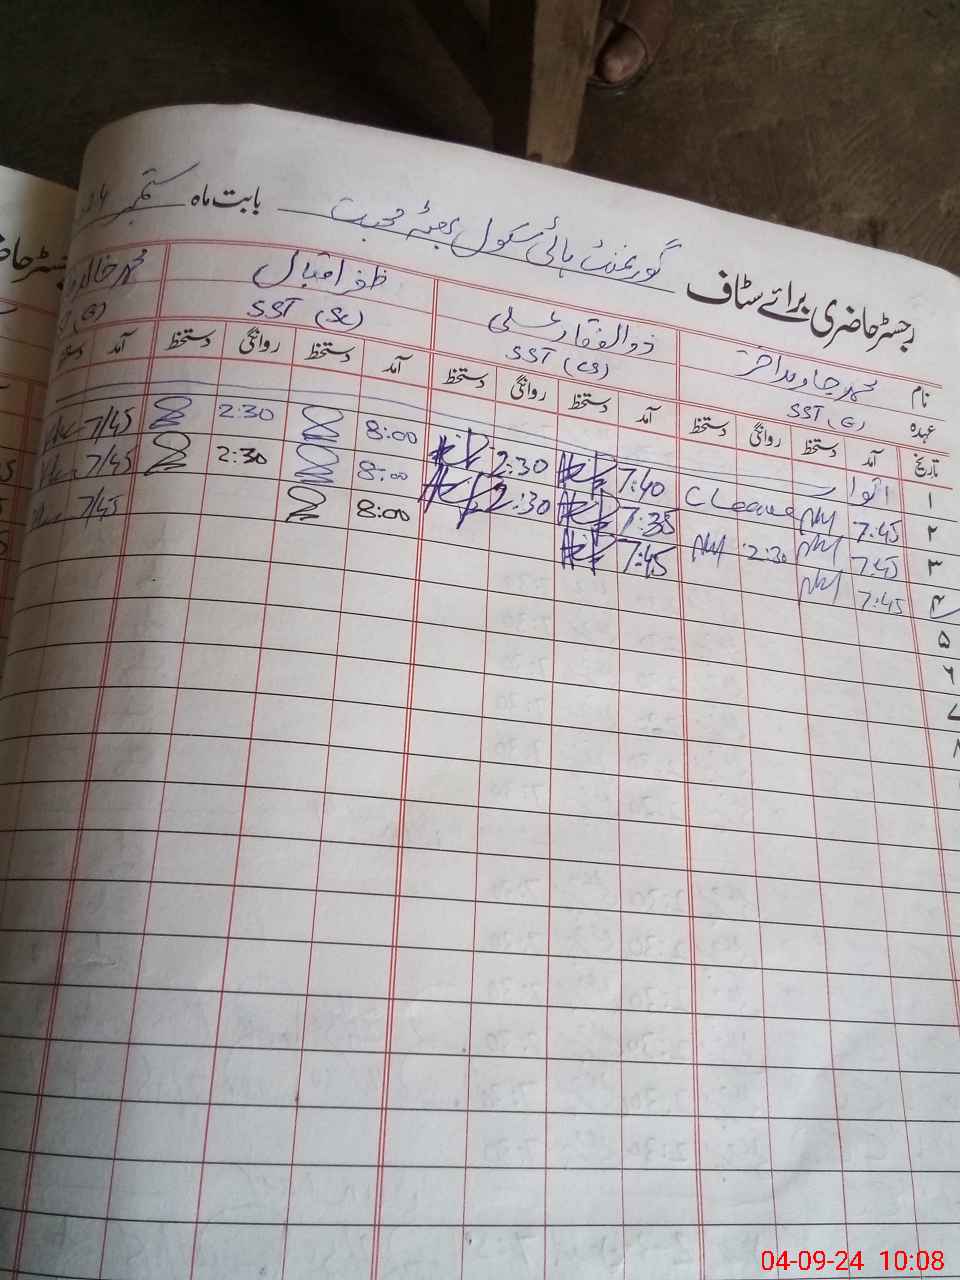 بابت ماہ ستمبر
گورنمنٹ ہائی سکول بھٹہ محبت
رجسٹر حاضری برائے سٹاف
نام محمد جاوید اختر ذوالفقار علی ظفر اقبال محمد خالد
عہدہ SST (G) SST (CS) SST (Sc) (G)
تاریخ آمد دستخظ روانگی دستخظ آمد دستخظ روانگی دستخظ آمد دستخظ روانگی دستخظ آمد
۱ اتوار
۲ 7:45 C Leave 7:40 2:30 8:00 2:30 7/45
۳ 7:45 2:30 7:35 2:30 8:00 2:30 7/45
۴ 7:45 7:45 8:00 7/45
۵
۶
۷
۸
04-09-24 10:08